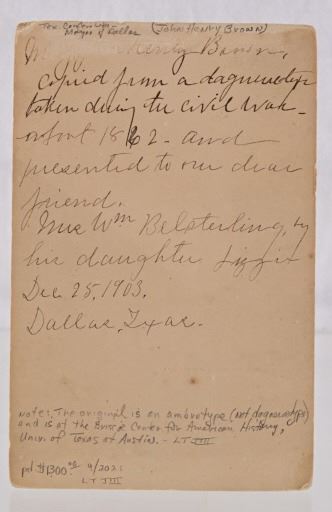 Tex Confederate (John Henry Brown)
Mayor of Dallas
Henry Brown,
copied from a daguerreotype
taken during the civil war-
about 1862. and
presented to our dear
friend.
Mrs Wm Belsterling, by
his daughter Lizzie
Dec 25, 1903.
Dallas, Texas.
note: The original is an ambrotype (not dagaeotype)
and is at the Briscoe Center for American History,
Univ. of Texas at Austin. - LT JIII
pd $1300.00 9/2021
LT JIII